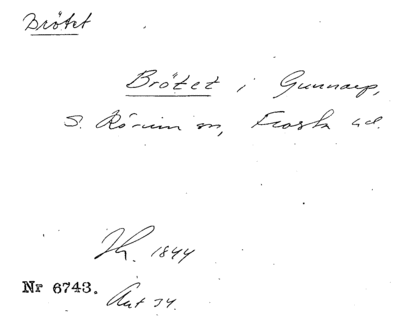 Brötet
Brötet i Gunnarp,
S. Rörum sn, Frosta hd.
Jh. 1844
Nr 6743.
Ant 34.